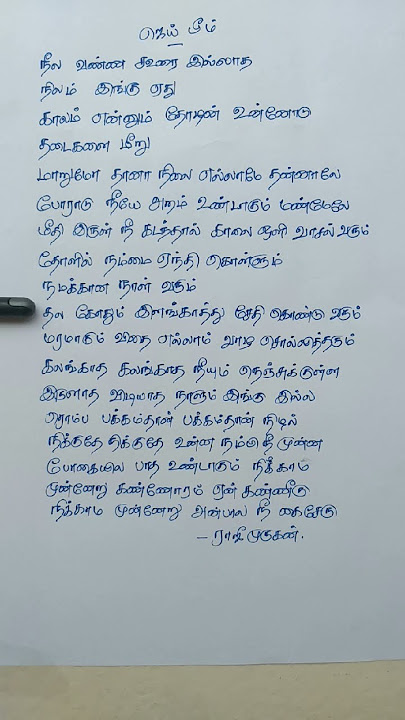 ஜெய் பீம்
நீல வண்ண கூரை இல்லாத
நிலம் இங்கு ஏது
காலம் என்னும் தோழன் உன்னோடு
தடைகளை மீறு
மாறுமோ தானா நிலை எல்லாமே தன்னாலே
போராடு நீயே அறம் உண்டாகும் மண்மேலே
மீதி இருள் நீ கடந்தால் காலை ஒளி வாசல் வரும்
தோளில் நம்மை ஏந்தி கொள்ளும்
நமக்கான நாள் வரும்
தல கோதும் இளங்காத்து சேதி கொண்டு வரும்
மரமாகும் விதை எல்லாம் வாழ சொல்லித்தரும்
கலங்காத கலங்காத நீயும் நெஞ்சுக்குள்ள
இருளாத விடியாத நாளும் இங்கு இல்ல
ரொம்ப பக்கம்தான் பக்கம்தான் நிழல்
நிக்குதே நிக்குதே உன்ன நம்பி நீ முன்ன
போகையில பாத உண்டாகும் நிக்காம
முன்னேறு கண்ணோரம் ஏன் கண்ணீரு
நிக்காம முன்னேறு அன்பால நீ கைசேரு
– ராஜி முருகன்.